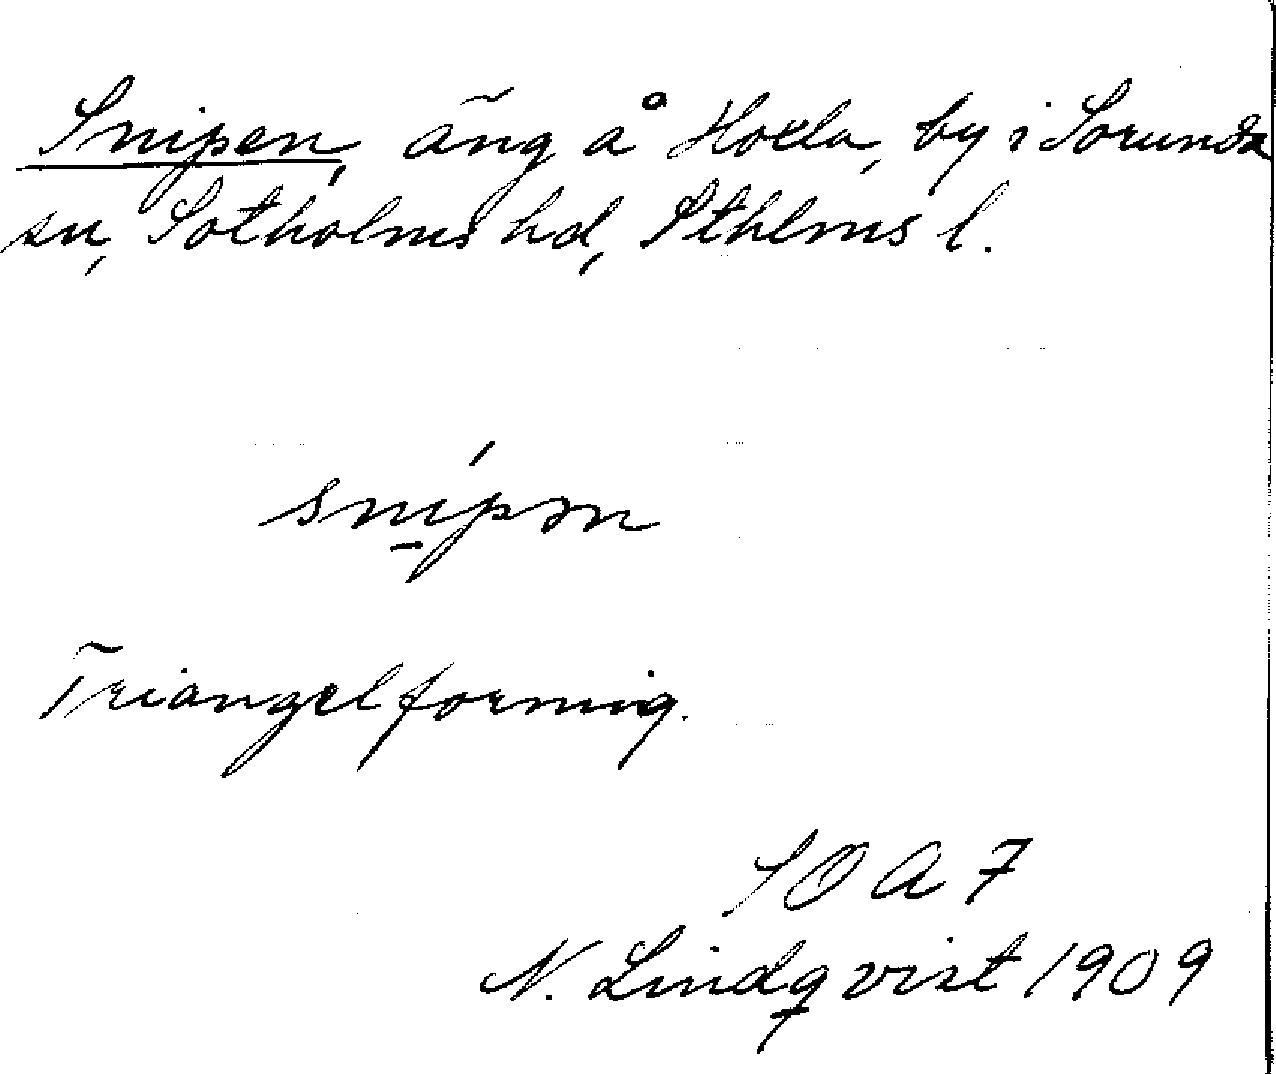 Snipen, äng å Hoxla, by i Sorunda
sn, Sotholms hd, Sthlms l.
snípən
Triangelformig.
SOAF
N. Lindqvist 1909